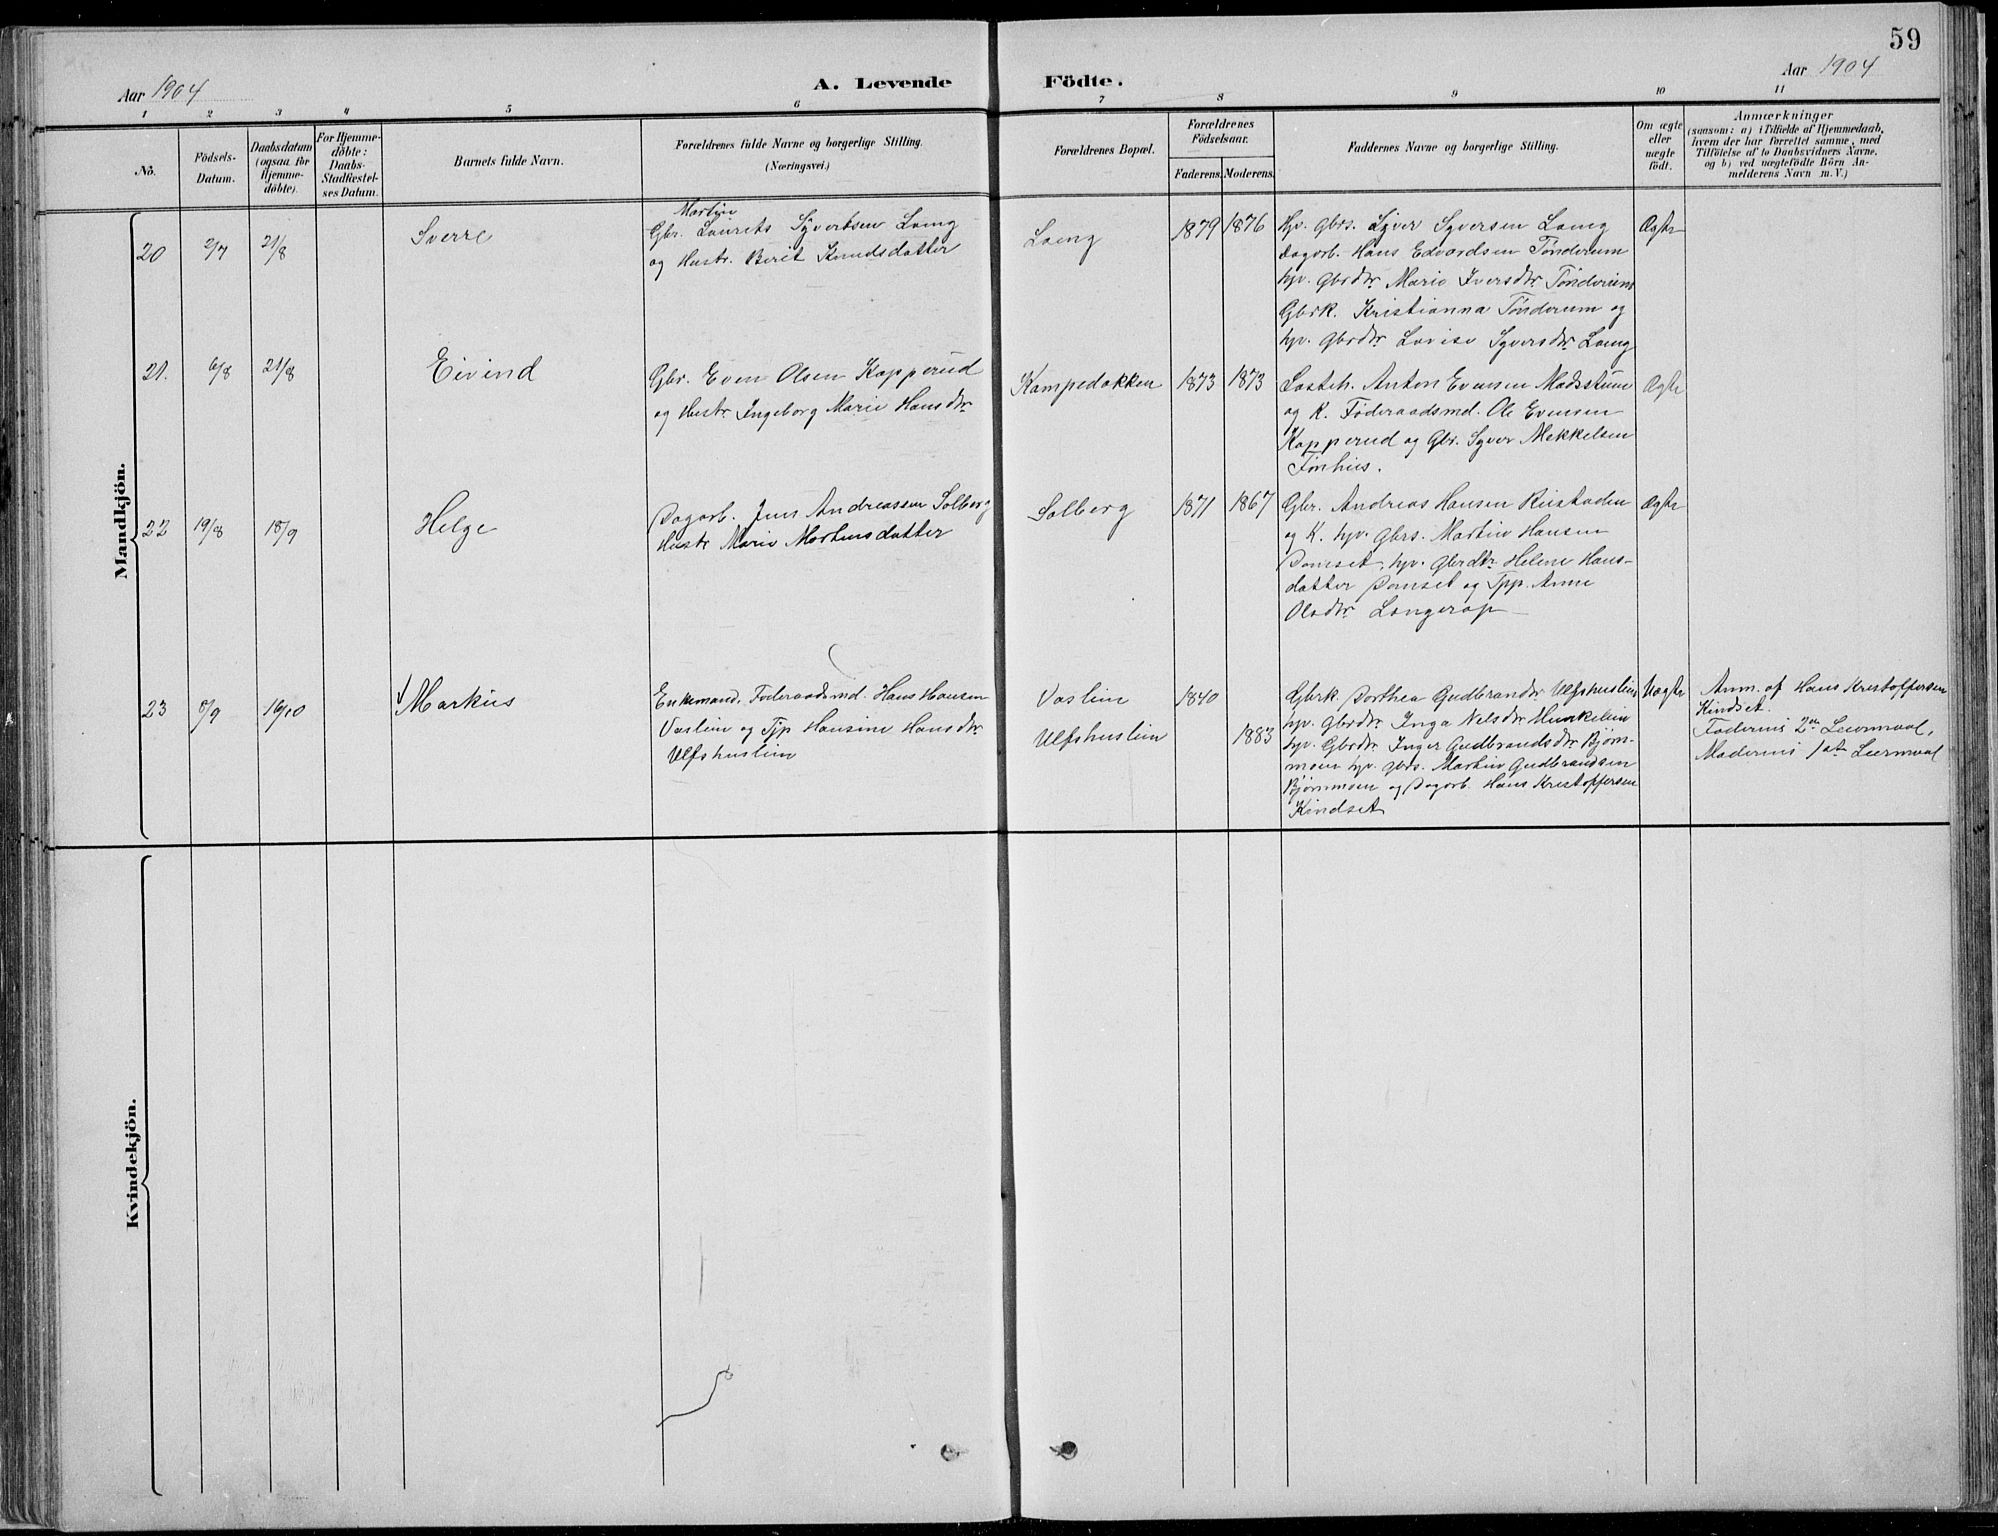 59
Aar 1904
A. Levende Födte.
Aar 1904
1 2 3 4 5 6 7 8 9 10 11
No.
Födsels-Datum.
Daabsdatum (ogsaa for Hjemme-döbte).
For Hjemme-döbte: Daabs-Stadfæstel-ses Datum.
Barnets fulde Navn.
Forældrenes fulde Navne og borgerlige Stilling.
(Næringsvei.)
Forældrenes Bopæl.
Forældrenes Födselsaar.
Faderens. Moderens.
Faddernes Navne og borgerlige Stilling.
Om ægte eller uægte födt.
Anmærkninger
(saasom: a) i Tilfælde af Hjemmedaab,
hvem der har forrettet samme, med
Tilföielse af to Daabsvidners Navne.
og b) ved uægtefödte Börn An-
melderens Navn m. V.)
Mandkjön.
20 2/7 21/8 Sverre
Martin
Gbr. Laurits Syvertsen Laing
og Hustr. Berit Knudsdatter
Laeng 1879 1876
Hp. Gbrs. Syver Syversen Laeng
Dagarb. Hans Edvardsen Tønderum
hp. Gbrdtr Marie Iversdtr Tønderum
Gbrk. Kristianna Tønderum og
hp. Gbrdtr Lovise Syversdtr Laeng
Ægte
21. 6/8 21/8 Eivind
Gbr. Even Olsen Kopperud
og Hustr Ingeborg Marie Hansdtr
Kampedokken 1873 1873
Anton Evensen Madsstuen
og K. Føderaadsmd. Ole Evensen
Kopperud og Gbr. Syver Mekkelsen
Tønhus.
Ægte
22 19/8 18/9 Helge
Dagarb. Jens Andreassen Solberg
Hustr Marie Martinsdatter
Solberg 1871 1867
Gbr. Andreas Hansen Rustaden
og K. hp. Gbrs. Martin Hansen
Domset, hp. Gbrdtr Helene Hans-
datter Domset og Tpp. Anne
Olsdtr Langerop
Ægte
23 8/9 16/10 Markus
Enkemand, Føderaadsmd. Hans Hansen
Vaslien og Tjp Hansine Hansdtr
Ulfshuslien
Vaslien 1840
Ulfshuslien 1883
Gbrk. Dorthea Gudbrandsdtr Ulfshuslien
hp. Gbrdtr Inga Nelsdtr Hunkelien
hp. Gbrdtr Inger Gudbrandsdtr Bjørn-
moen hp. Gbrs. Martin Gudbrandsen
Bjørnmoen og Dagarb. Hans Kristoffersen
Kindset
Uægte
Anm. af Hans Kristoffersen
Kindset.
Faderens 2det Leiermaal,
Moderens 1ste Leiermaal
Kvindekjön.